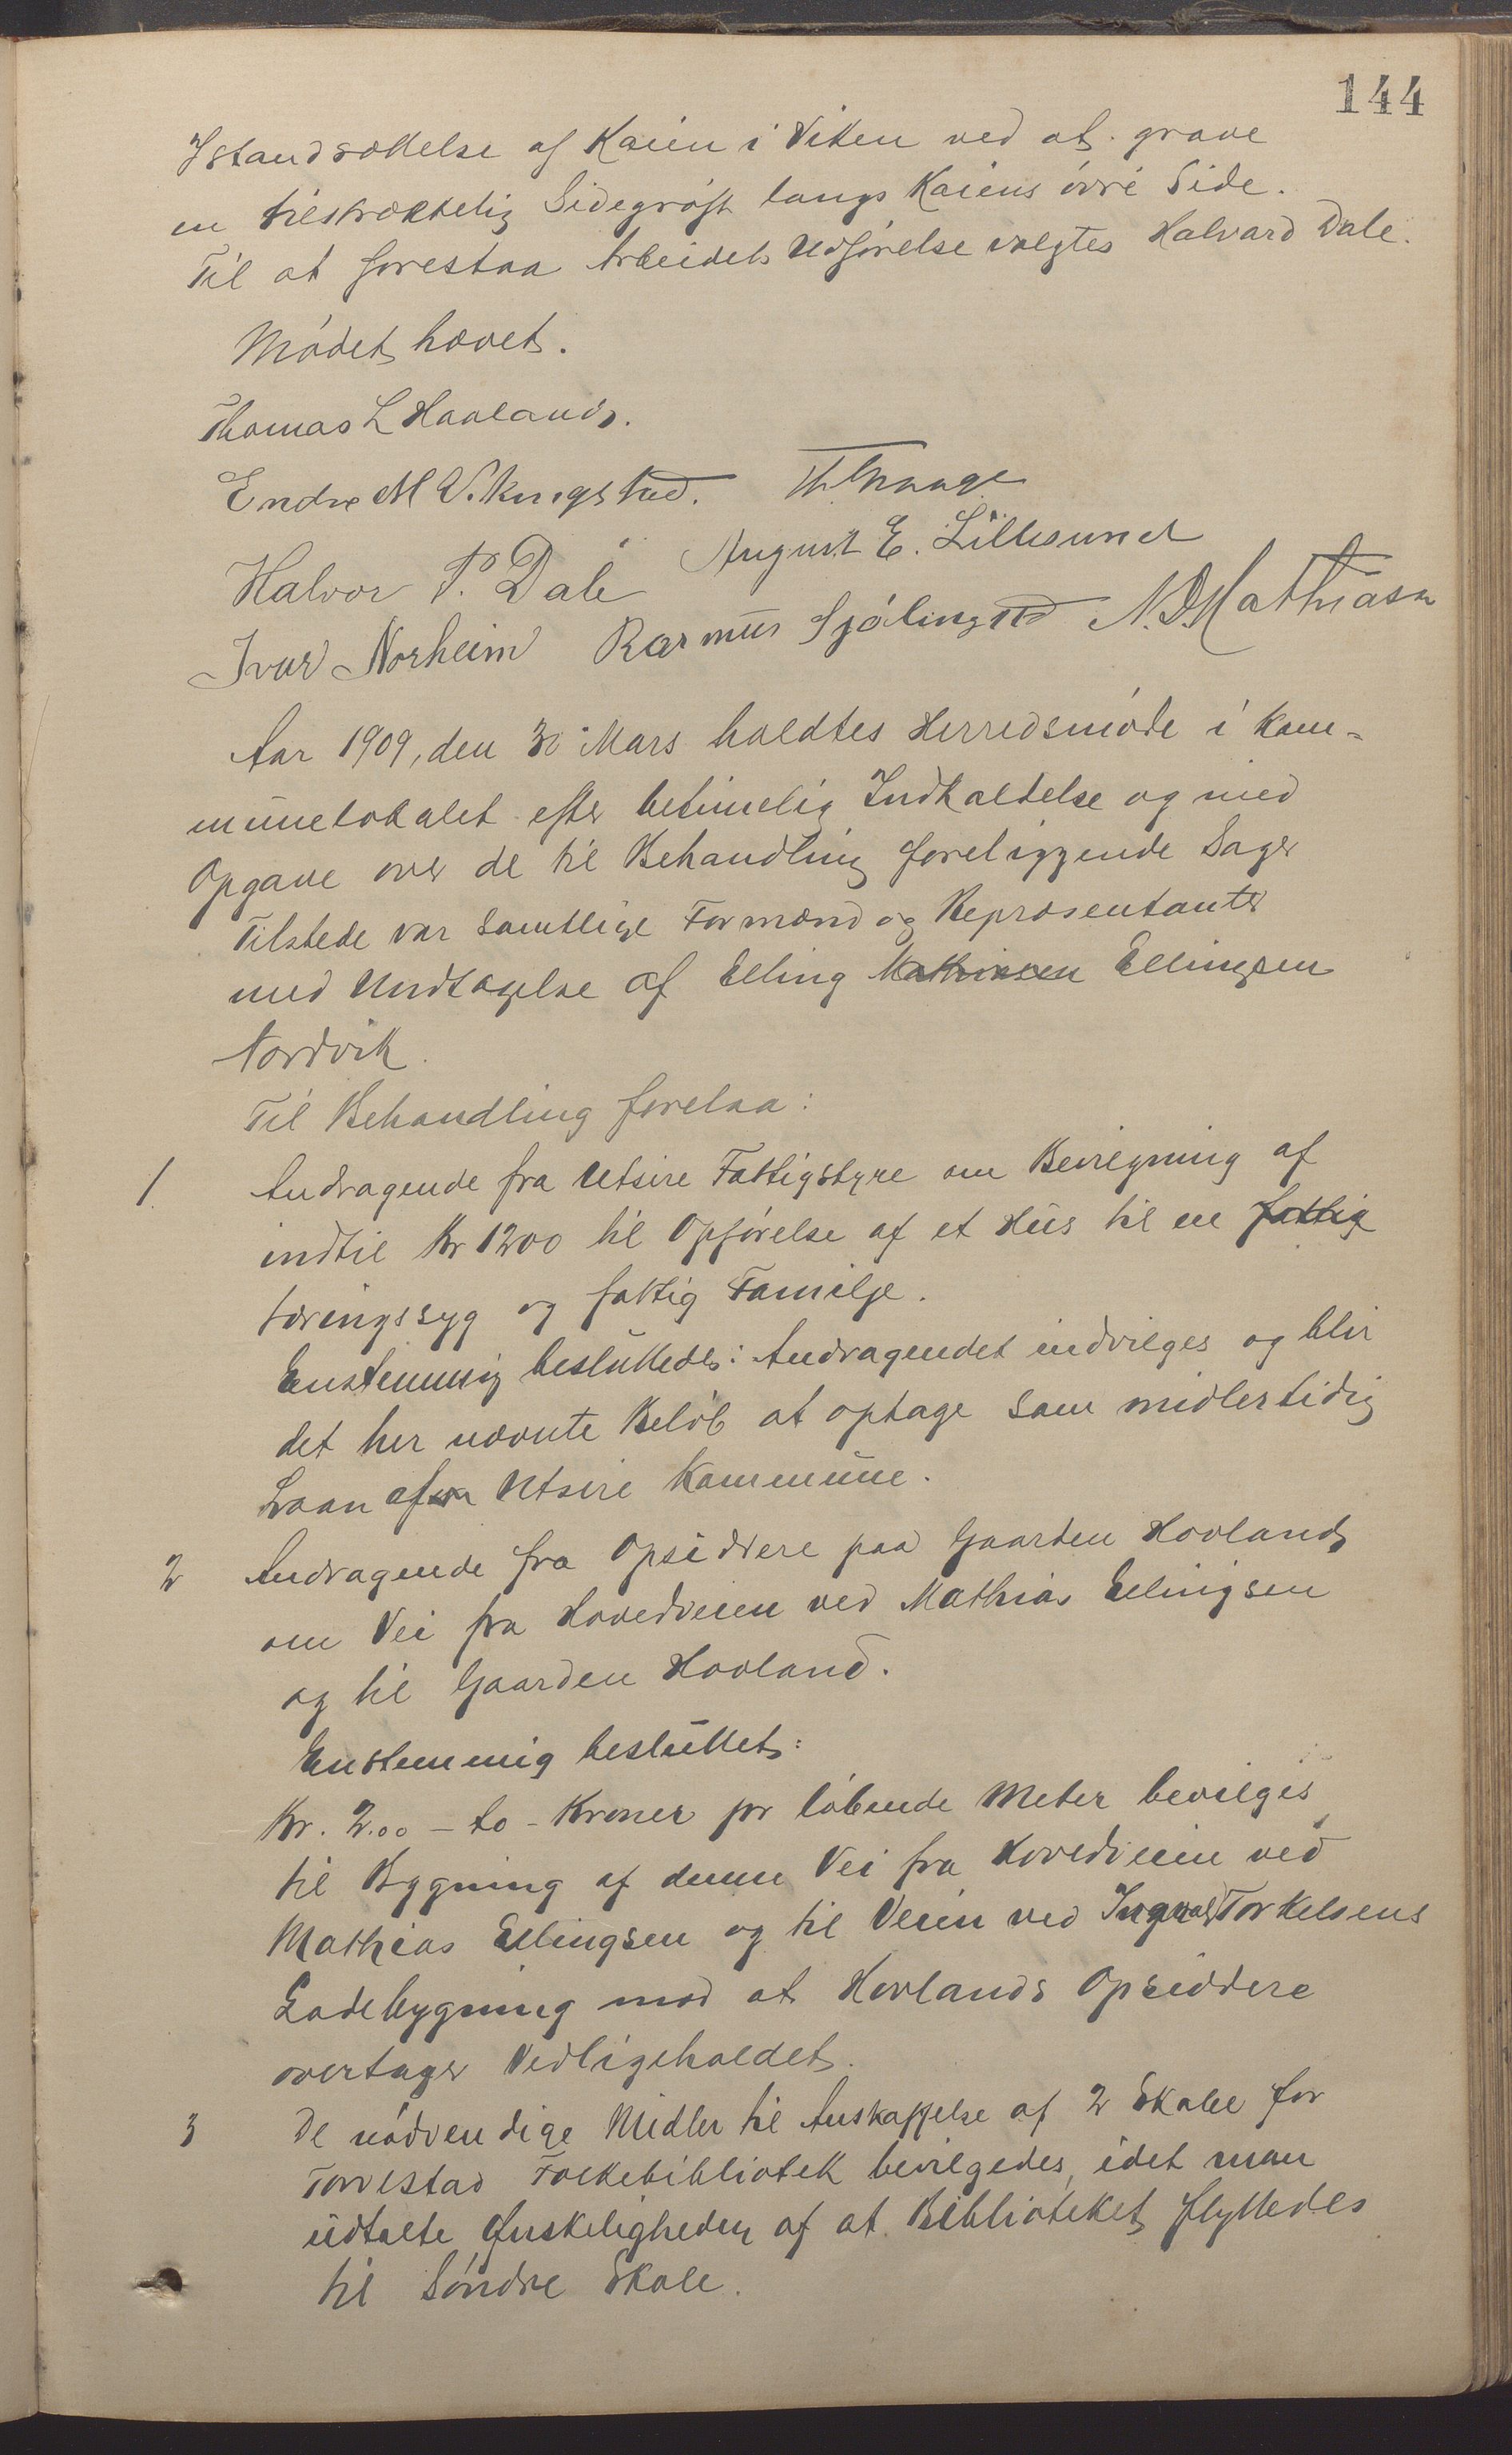 144
Istandsættelse af Kaien i Viken ved at grave
en tilstrækkelig Sidegrøft langs Kaiens øvre Side.
Til at forestaa Arbeidets Udførelse valgtes Halvard Dale.
Mødet hævet.
Thomas L Haaland.
Endre M Vikingstad.
Halvor P. Dale August E. Lillesund
Ivar Norheim Rasmus Sjølingstad N. D. Mathiasen
Aar 1909, den 30 Mars holdtes Herredsmøde i Kom-
munelokalet efter betimelig Indkaldelse og med
Opgave over de til Behandling foreliggende Sager
Tilstede var samtlige Formænd og Repræsentanter
med Undtagelse af Elling Mathiesen Ellingsen
Nordvik.
Til Behandling forelaa:
1 Andragende fra Utsire Fattigstyre om Bevilgning af
indtil Kr 1200 til Opførelse af et Hus til en fattig
tæringssyg og fattig Familje.
Enstemmig besluttedes: Andragendet indvilges og blir
det her nævnte Beløb at optage som midlertidig
Laan af Utsire Kommune.
2 Andragende fra Opsiddere paa Gaarden Hovland
om Vei fra Hovedveien ved Mathias Ellingsen
og til Gaarden Hovland.
Enstemmig besluttet:
Kr. 2.00 - to - Kroner pr løbende Meter bevilges
til Bygning af denne Vei fra Hovedveien ved
Mathias Ellingsen og til Veien ved Ingvald Torkelsens
Ladebygning mod at Hovlands Opsiddere
overtager Vedligeholdet.
3 De nødvendige Midler til Anskaffelse af 2 Skabe for
Torvestad Folkebibliotek bevilgedes, idet man
udtalte Ønskeligheden af at Biblioteket flyttedes
til Søndre Skole.